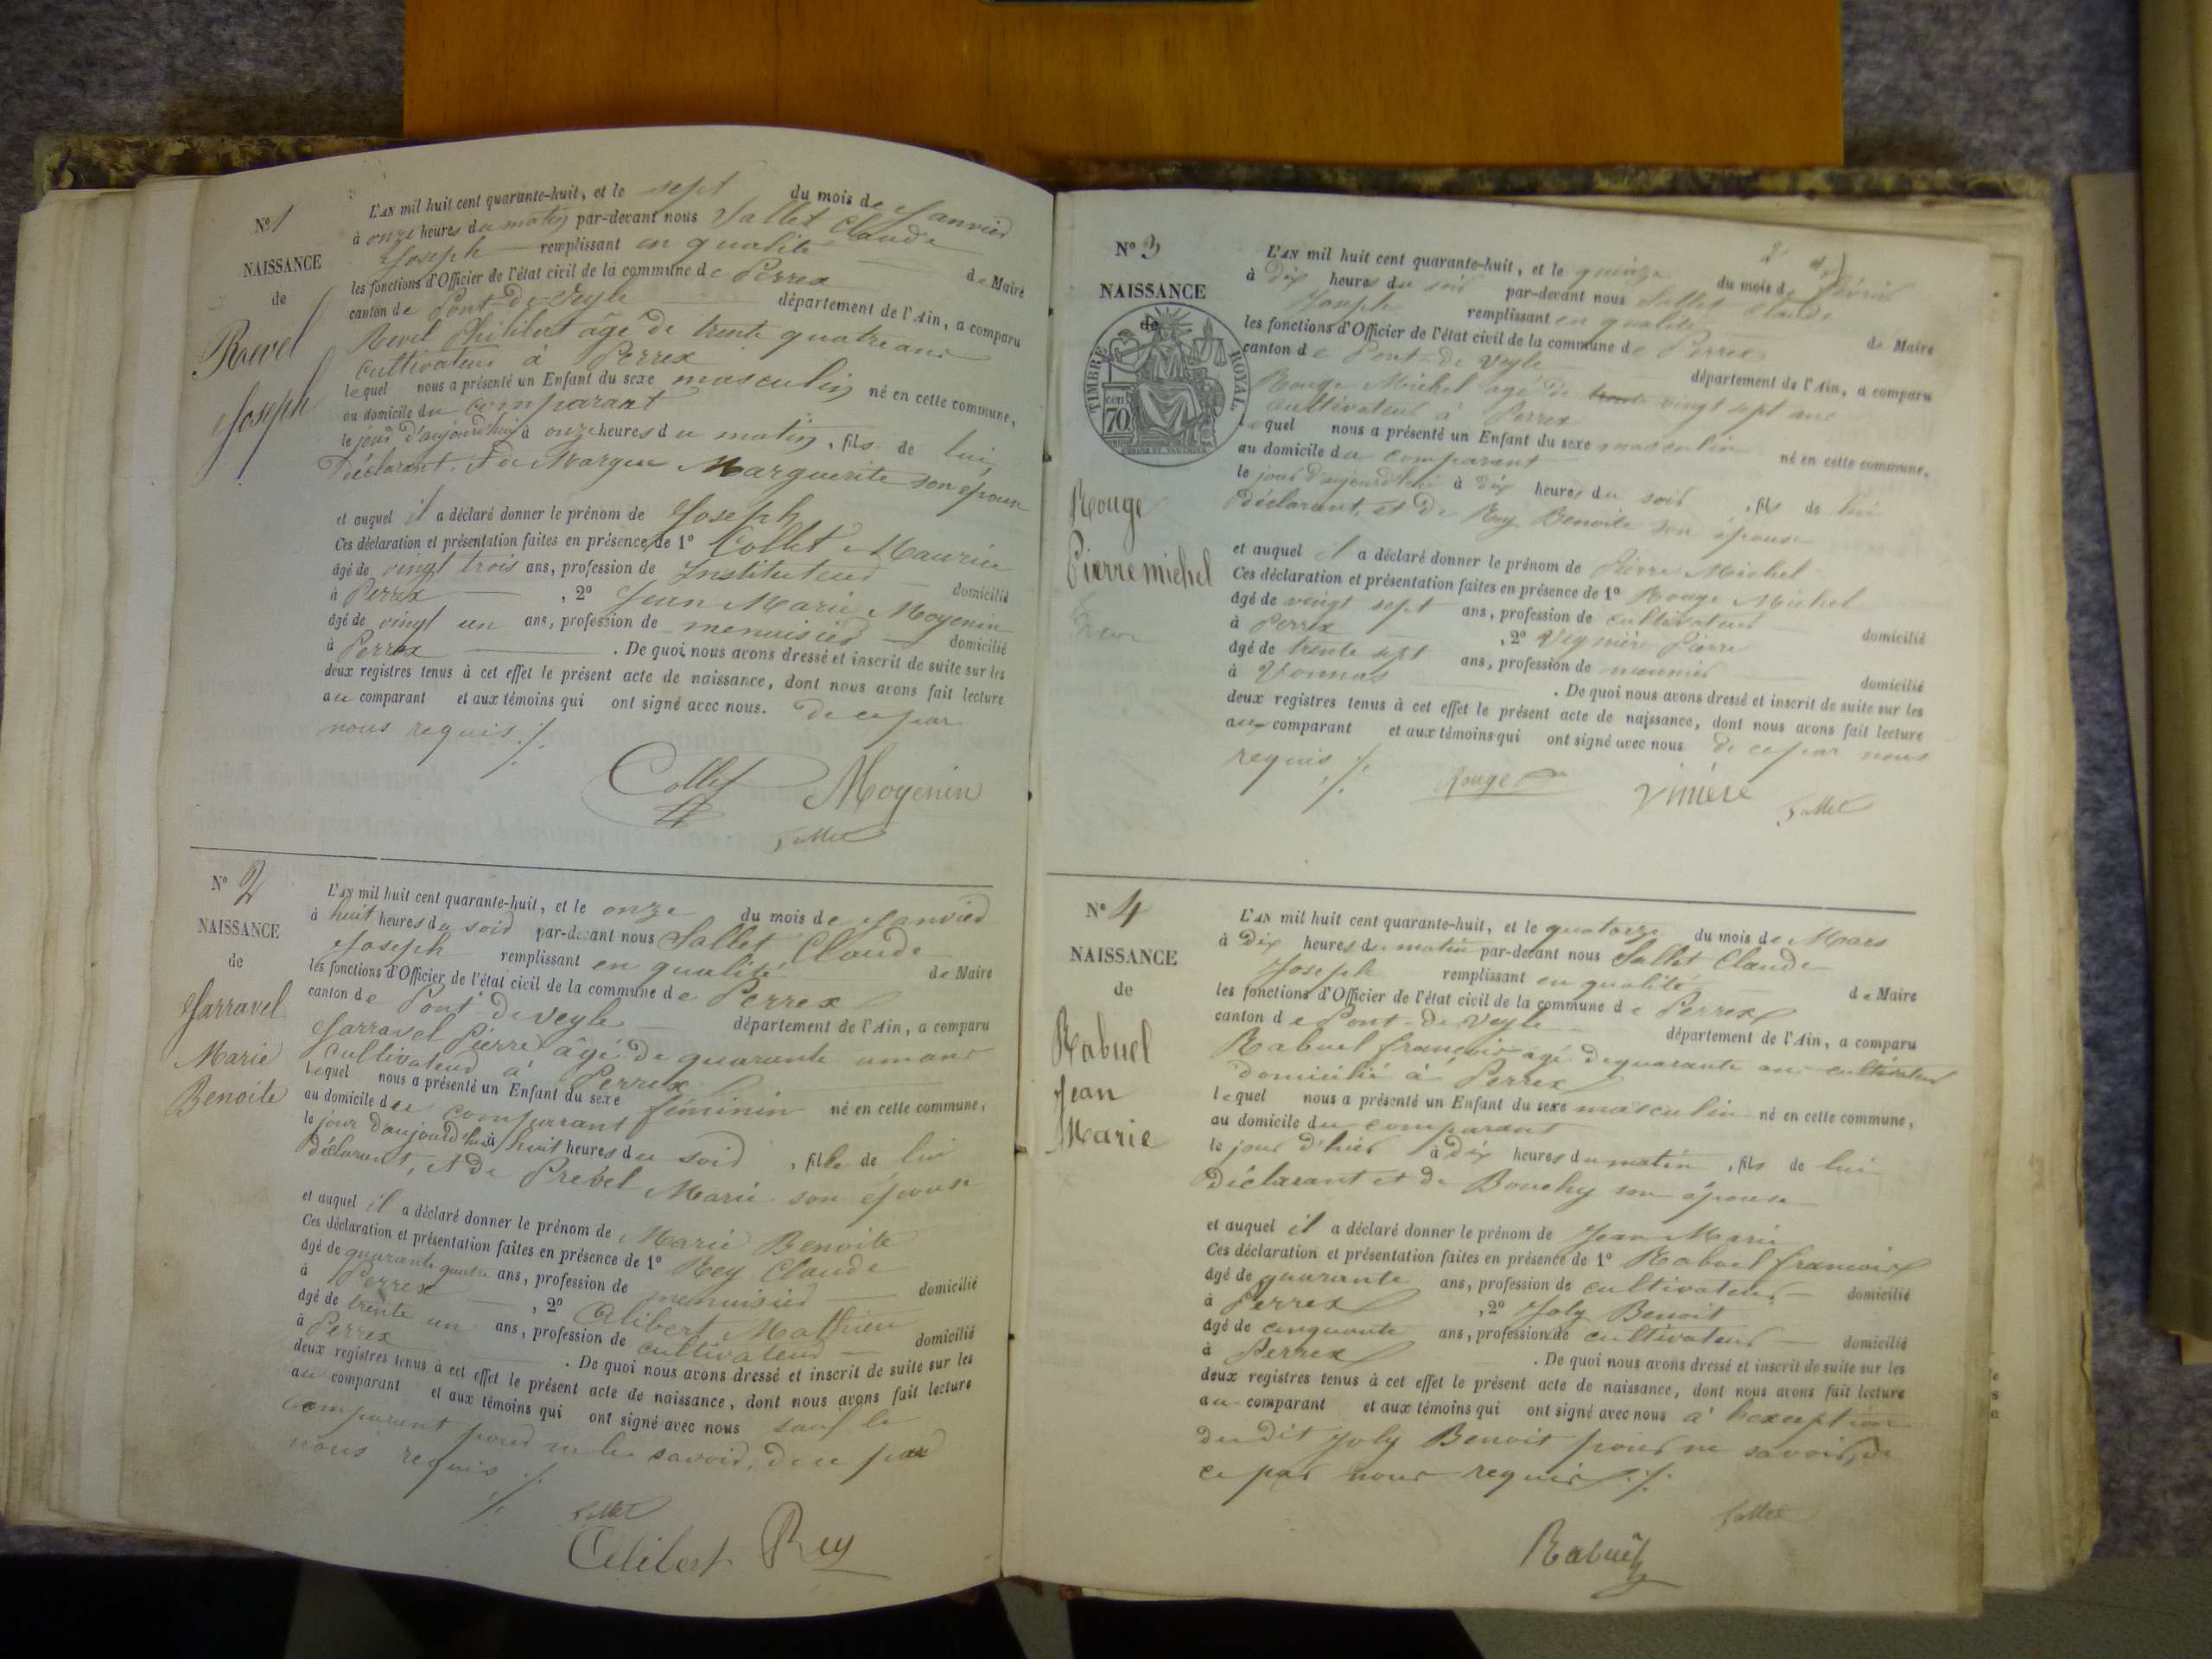 Nº 1
NAISSANCE
de
Revel
Joseph
L'AN mil huit cent quarante-huit, et le sept du mois de Janvier
à onze heures du matin par-devant nous Sallet Claude
Joseph remplissant en qualité de Maire
les fonctions d'Officier de l'état civil de la commune de Perrex
canton de Pont-de-Veyle département de l'Ain, a comparu
Revel Philibert âgé de trente quatre ans
cultivateur à Perrex
lequel nous a présenté un Enfant du sexe masculin né en cette commune,
au domicile du comparant
le jour d'aujourd'hui à onze heures du matin, fils de lui
déclarant, et de Marguerite son épouse
et auquel il a déclaré donner le prénom de Joseph
Ces déclaration et présentation faites en présence de 1º Collet Maurice
âgé de vingt trois ans, profession de Instituteur domicilié
à Perrex , 2º Jean Marie Moyenin
âgé de vingt un ans, profession de menuisier domicilié
à Perrex . De quoi nous avons dressé et inscrit de suite sur les
deux registres tenus à cet effet le présent acte de naissance, dont nous avons fait lecture
au comparant et aux témoins qui ont signé avec nous. de ce par
nous requis ./.
Collet Moyenin
Sallet
Nº 2
NAISSANCE
de
Jarravel
Marie
Benoite
L'AN mil huit cent quarante-huit, et le onze du mois de Janvier
à huit heures du soir par-devant nous Sallet Claude
Joseph remplissant en qualité de Maire
les fonctions d'Officier de l'état civil de la commune de Perrex
canton de Pont de Veyle département de l'Ain, a comparu
Jarravel Pierre âgé de quarante un ans
cultivateur à Perrex
lequel nous a présenté un Enfant du sexe féminin né en cette commune,
au domicile du comparant
le jour d'aujourd'hui à huit heures du soir , fille de lui
déclarant, et de Prevel Marie son épouse
et auquel il a déclaré donner le prénom de Marie Benoite
Ces déclaration et présentation faites en présence de 1º Rey Claude
âgé de quarante quatre ans, profession de menuisier domicilié
à Perrex , 2º Alibert Mathieu
âgé de trente un ans, profession de cultivateur domicilié
à Perrex . De quoi nous avons dressé et inscrit de suite sur les
deux registres tenus à cet effet le présent acte de naissance, dont nous avons fait lecture
au comparant et aux témoins qui ont signé avec nous sauf le
comparant pour ne le savoir, de ce par
nous requis ./.
Sallet
Alibert Rey
Nº 3
NAISSANCE
de
TIMBRE ROYAL
70 cen
Rouge
Pierre michel
L'AN mil huit cent quarante-huit, et le quinze du mois de février
à dix heures du soir par-devant nous Sallet Claude
Joseph remplissant en qualité de Maire
les fonctions d'Officier de l'état civil de la commune de Perrex
canton de Pont-de Veyle département de l'Ain, a comparu
Rouge Michel agé de trente vingt sept ans
cultivateur à Perrex
lequel nous a présenté un Enfant du sexe masculin né en cette commune,
au domicile du comparant
le jour d'aujourd'hui à dix heures du soir , fils de lui
déclarant, et de Rey Benoite son épouse
et auquel il a déclaré donner le prénom de Pierre Michel
Ces déclaration et présentation faites en présence de 1º Rouge Michel
âgé de vingt sept ans, profession de cultivateur domicilié
à Perrex , 2º Pierre
âgé de trente sept ans, profession de meunier domicilié
à Vonnas . De quoi nous avons dressé et inscrit de suite sur les
deux registres tenus à cet effet le présent acte de naissance, dont nous avons fait lecture
au comparant et aux témoins qui ont signé avec nous de ce par nous
requis ./.
Rouge Sallet
Nº 4
NAISSANCE
de
Rabuel
Jean
Marie
L'AN mil huit cent quarante-huit, et le quatorze du mois de Mars
à dix heures du matin par-devant nous Sallet Claude
Joseph remplissant en qualité de Maire
les fonctions d'Officier de l'état civil de la commune de Perrex
canton de Pont-de-Veyle département de l'Ain, a comparu
Rabuel françois agé de quarante ans cultivateur
domicilié à Perrex
lequel nous a présenté un Enfant du sexe masculin né en cette commune,
au domicile du comparant
le jour d'hier à dix heures du matin , fils de lui
déclarant et de Bouchy son épouse
et auquel il a déclaré donner le prénom de Jean Marie
Ces déclaration et présentation faites en présence de 1º Rabuel francois
âgé de quarante ans, profession de cultivateur domicilié
à Perrex , 2º Joly Benoit
âgé de cinquante ans, profession de cultivateur domicilié
à Perrex . De quoi nous avons dressé et inscrit de suite sur les
deux registres tenus à cet effet le présent acte de naissance, dont nous avons fait lecture
au comparant et aux témoins qui ont signé avec nous à l'exception
du dit Joly Benoit pour ne savoir, de
ce par nous requis ./.
Sallet
Rabuel